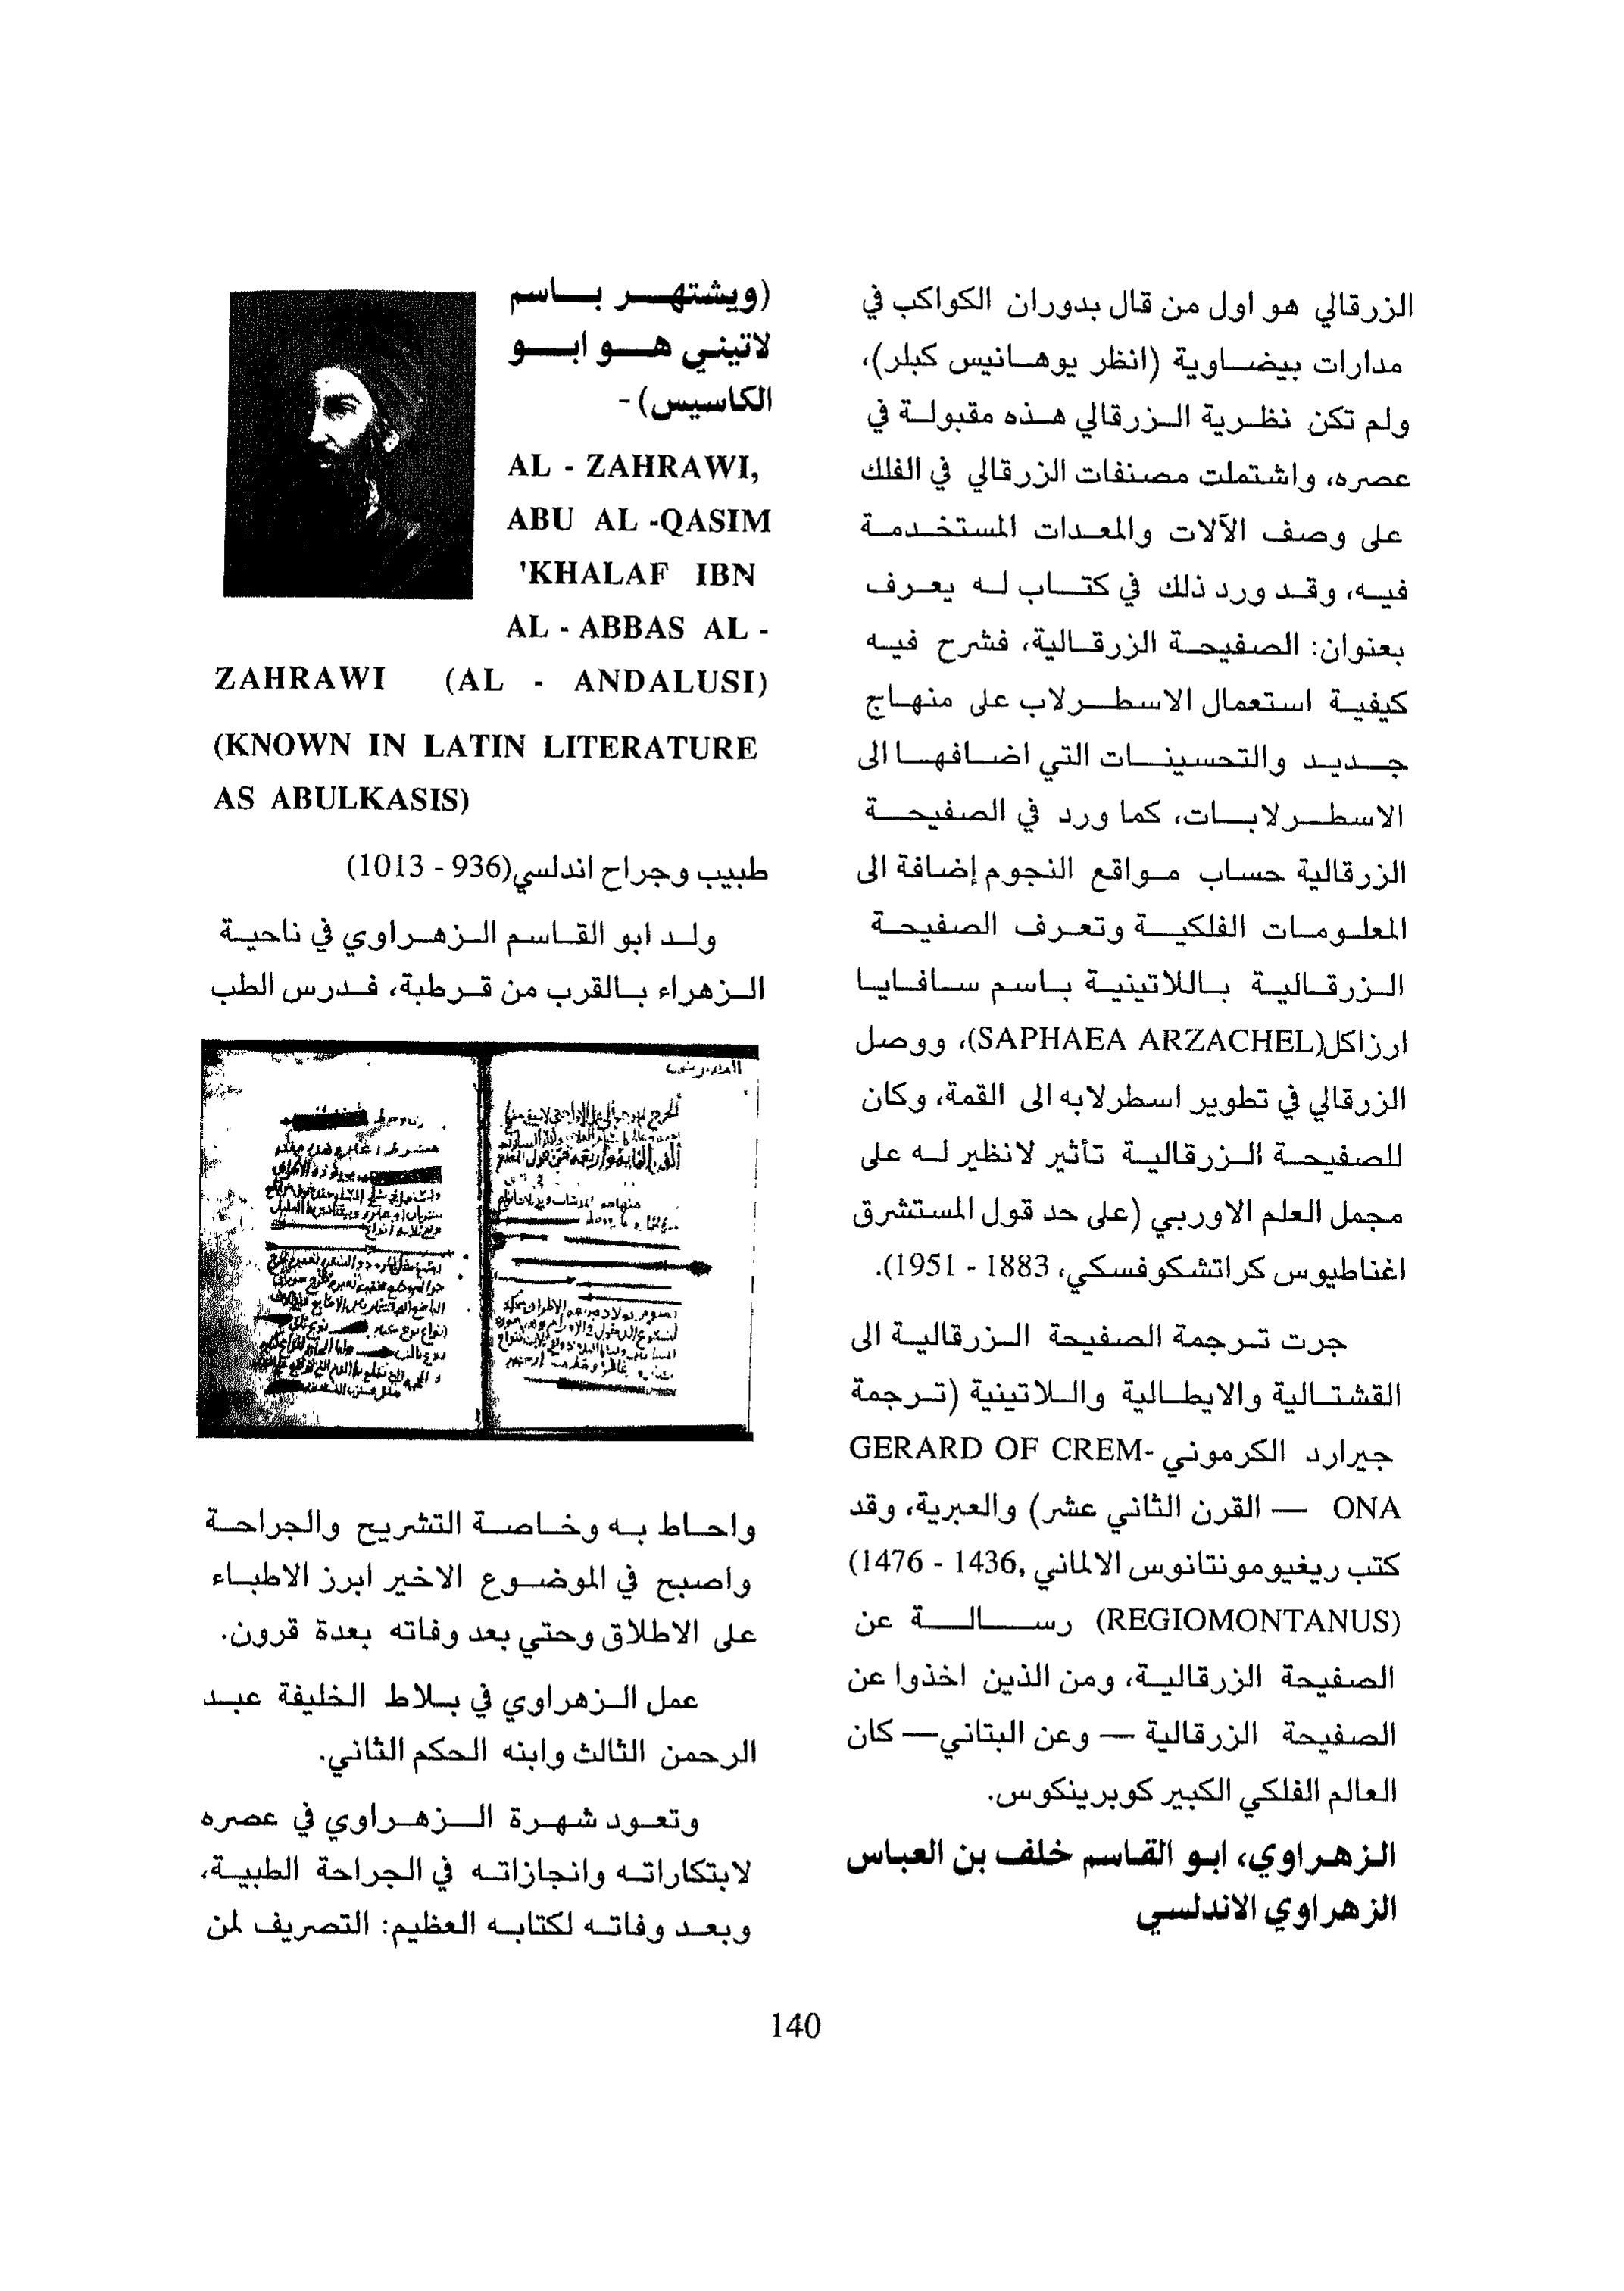 الزرقالي هو اول من قال بدوران الكواكب في
مدارات بيضاوية (انظر يوهانيس كبلر)،
ولم تكن نظرية الزرقالي هذه مقبولة في
عصره، واشتملت مصنفات الزرقالي في الفلك
على وصف الآلات والمعدات المستخدمة
فيه، وقد ورد ذلك في كتاب له يعرف
بعنوان: الصفيحة الزرقالية، فشرح فيه
كيفية استعمال الاسطرلاب على منهاج
جديد والتحسينات التي اضافها الى
الاسطرلابات، كما ورد في الصفيحة
الزرقالية حساب مواقع النجوم إضافة الى
المعلومات الفلكية وتعرف الصفيحة
الزرقالية باللاتينية باسم سافايا
ارزاكل(SAPHAEA ARZACHEL)، ووصل
الزرقالي في تطوير اسطرلابه الى القمة، وكان
للصفيحة الزرقالية تأثير لانظير له على
مجمل العلم الاوربي (على حد قول المستشرق
اغناطيوس كراتشكوفسكي، 1883 - 1951).
جرت ترجمة الصفيحة الزرقالية الى
القشتالية والايطالية واللاتينية (ترجمة
جيرارد الكرموني GERARD OF CREM-
ONA — القرن الثاني عشر) والعبرية، وقد
كتب ريغيومونتانوس الالماني ,1436 - 1476)
(REGIOMONTANUS) رسالة عن
الصفيحة الزرقالية، ومن الذين اخذوا عن
الصفيحة الزرقالية — وعن البتاني — كان
العالم الفلكي الكبير كوبرينكوس.
الزهراوي، ابو القاسم خلف بن العباس
الزهراوي الاندلسي
(ويشتهر باسم
لاتيني هو ابو
الكاسيس) -
AL - ZAHRAWI,
ABU AL -QASIM
'KHALAF IBN
AL - ABBAS AL -
ZAHRAWI (AL - ANDALUSI)
(KNOWN IN LATIN LITERATURE
AS ABULKASIS)
طبيب وجراح اندلسي(936 - 1013)
ولد ابو القاسم الزهراوي في ناحية
الزهراء بالقرب من قرطبة، فدرس الطب
واحاط به وخاصة التشريح والجراحة
واصبح في الموضوع الاخير ابرز الاطباء
على الاطلاق وحتي بعد وفاته بعدة قرون.
عمل الزهراوي في بلاط الخليفة عبد
الرحمن الثالث وابنه الحكم الثاني.
وتعود شهرة الزهراوي في عصره
لابتكاراته وانجازاته في الجراحة الطبية،
وبعد وفاته لكتابه العظيم: التصريف لمن
140